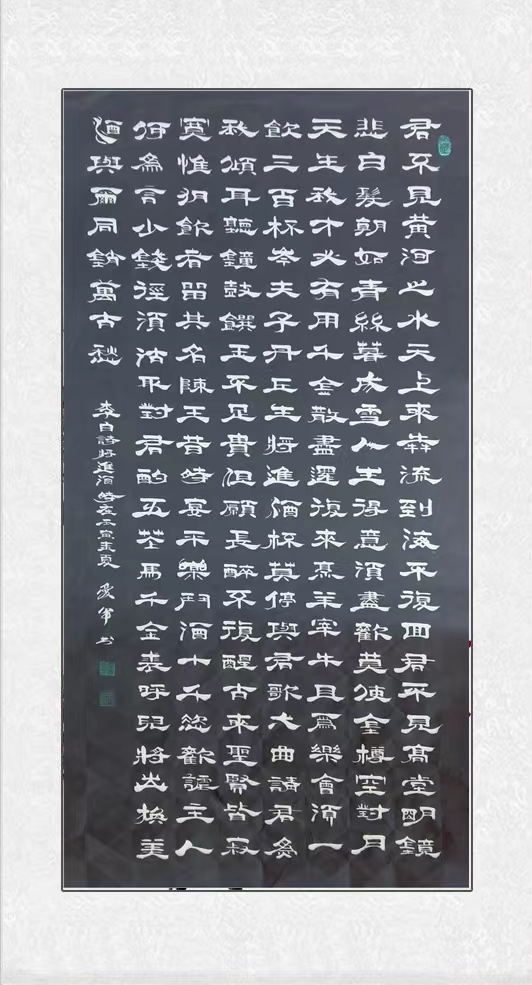 君不見黃河之水天上來犇流到海不復回君不見高堂明鏡
悲白髮朝如青絲暮成雪人生得意須盡歡莫使金樽空對月
天生我才必有用千金散盡還復來烹羊宰牛且爲樂會須一
飲三百杯岑夫子丹丘生將進酒杯莫停與君歌一曲請君爲
我傾耳聽鐘鼓饌玉不足貴但願長醉不復醒古來聖賢皆寂
寞惟有飲者留其名陳王昔時宴平樂鬥酒十千恣歡謔主人
何爲言少錢徑須沽取對君酌五花馬千金裘呼兒將出換美
酒與爾同銷萬古愁
李白詩將進酒時在壬寅末夏